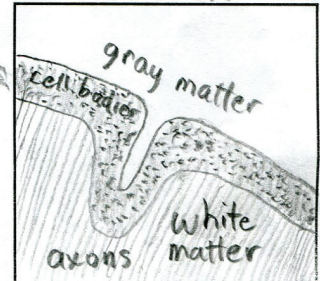 gray matter
cell bodies
white
matter
axons